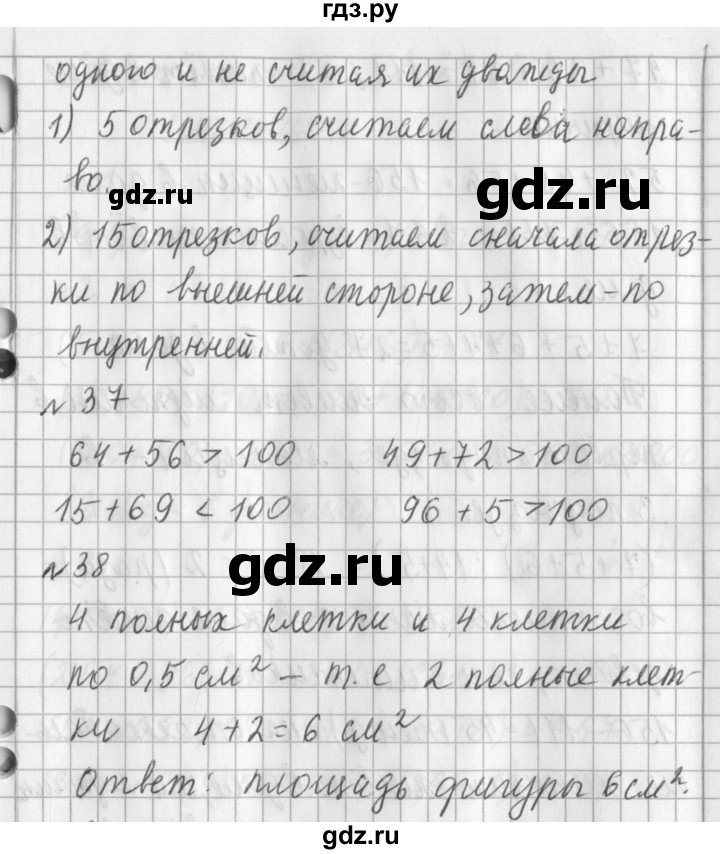 гдз.ру
одного и не считая их дважды
1) 5 отрезков, считаем слева напра-
во.
gdz.ru
gdz.ru
2) 15 отрезков, считаем сначала отрез-
ки по внешней стороне, затем - по
внутренней.
№ 37
64 + 56 > 100 49 + 72 > 100
15 + 69 < 100 96 + 5 > 100
№ 38
gdz.ru
4 полных клетки и 4 клетки
по 0,5 см² - т. е 2 полные клет-
ки 4 + 2 = 6 см²
Ответ: площадь фигуры 6 см².
gdz.ru